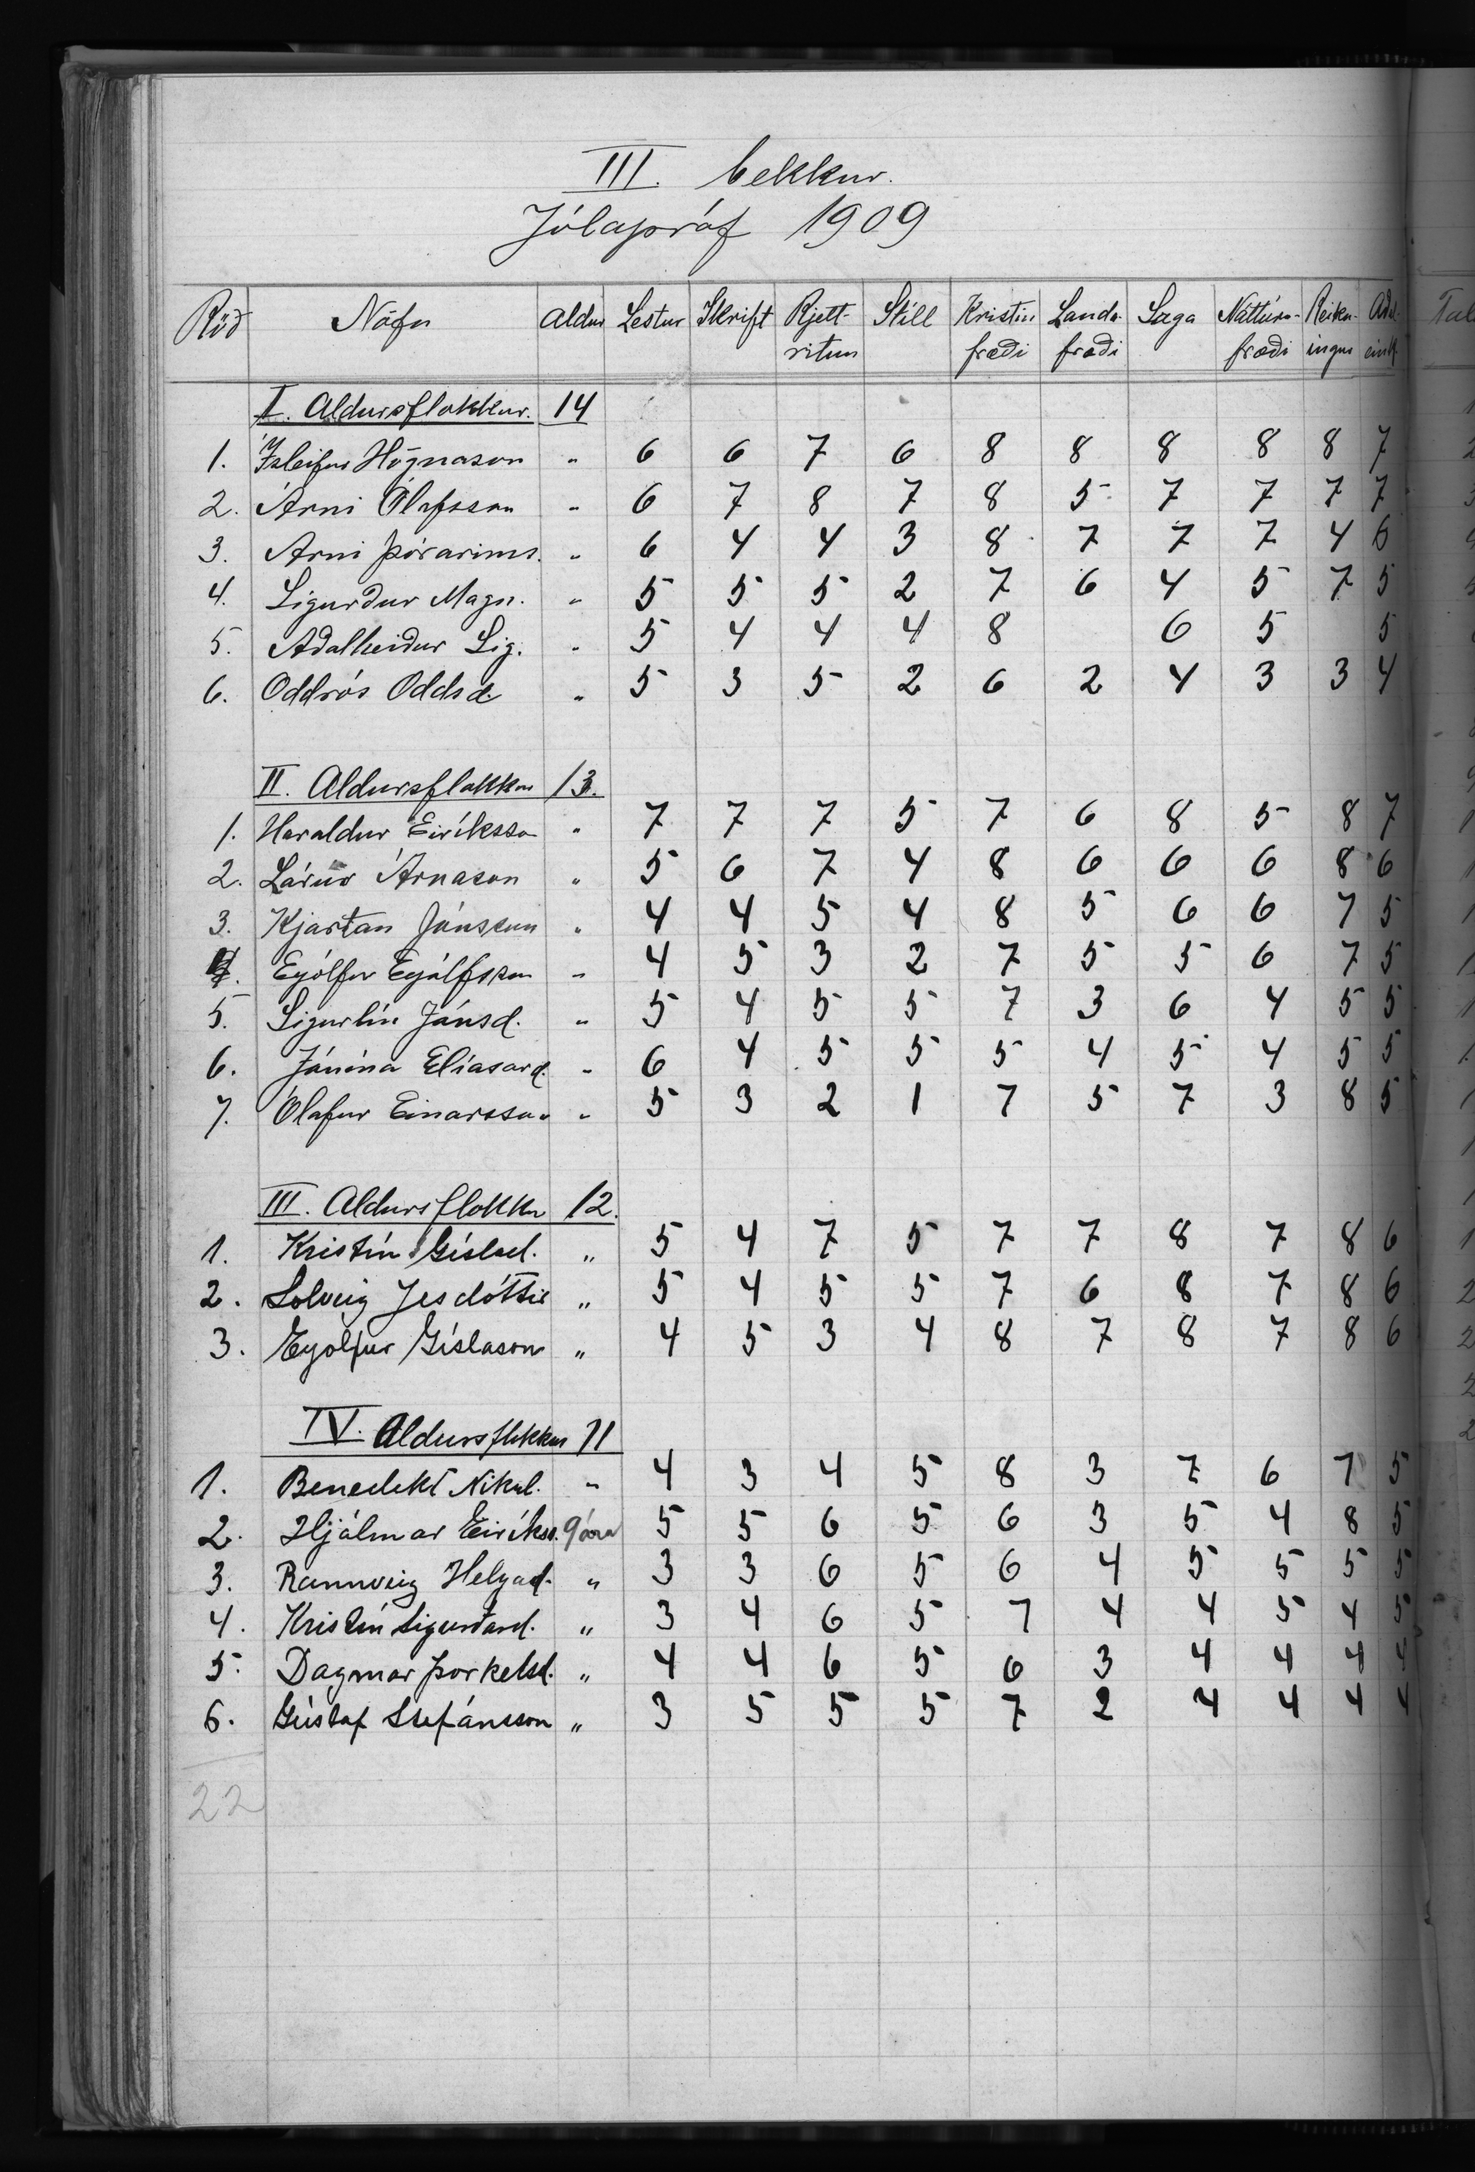 III. bekkur.
Jólapróf 1909
Röð Nöfn Aldur Lestur Skrift Rjett- Stíll Kristin Landa- Saga Náttúru- Reikn- Aðal-
ritun fræði fræði fræði ingur eink
I. Aldursflokkur. 14
1. Ísleifur Högnason " 6 6 7 6 8 8 8 8 8 7
2. Árni Ólafsson " 6 7 8 7 8 5 7 7 7 7
3. Árni Þórarins. " 6 4 4 3 8 7 7 7 4 6
4. Sigurður Magn. " 5 5 5 2 7 6 4 5 7 5
5. Aðalheiður Sig. " 5 4 4 4 8 6 5 5
6. Oddrós Oddsd " 5 3 5 2 6 2 4 3 3 4
II. Aldursflokkur 13.
1. Haraldur Eiríksson " 7 7 7 5 7 6 8 5 8 7
2. Lárus Árnason " 5 6 7 4 8 6 6 6 8 6
3. Kjartan Jónsson " 4 4 5 4 8 5 6 6 7 5
4. Eyólfur Eyólfsson " 4 5 3 2 7 5 5 6 7 5
5. Sigurlín Jónsd. " 5 4 5 5 7 3 6 4 5 5
6. Jónína Elíasard. " 6 4 5 5 5 4 5 4 5 5
7. Ólafur Einarsson " 5 3 2 1 7 5 7 3 8 5
III. Aldursflokkur 12.
1. Kristín Gíslad. " 5 4 7 5 7 7 8 7 8 6
2. Solveig Jesdóttir " 5 4 5 5 7 6 8 7 8 6
3. Eyolfur Gíslason " 4 5 3 4 8 7 8 7 8 6
IV. Aldursflokkur 11
1. Benedikt Nikul. " 4 3 4 5 8 3 7 6 7 5
2. Hjálmar Eiríkss. 9 ára 5 5 6 5 6 3 5 4 8 5
3. Rannveig Helgad. " 3 3 6 5 6 4 5 5 5 5
4. Kristín Sigurðard. " 3 4 6 5 7 4 4 5 4 5
5. Dagmar Þorkelsd. " 4 4 6 5 6 3 4 4 4 4
6. Gústaf Stefánsson " 3 5 5 5 7 2 4 4 4 4
22